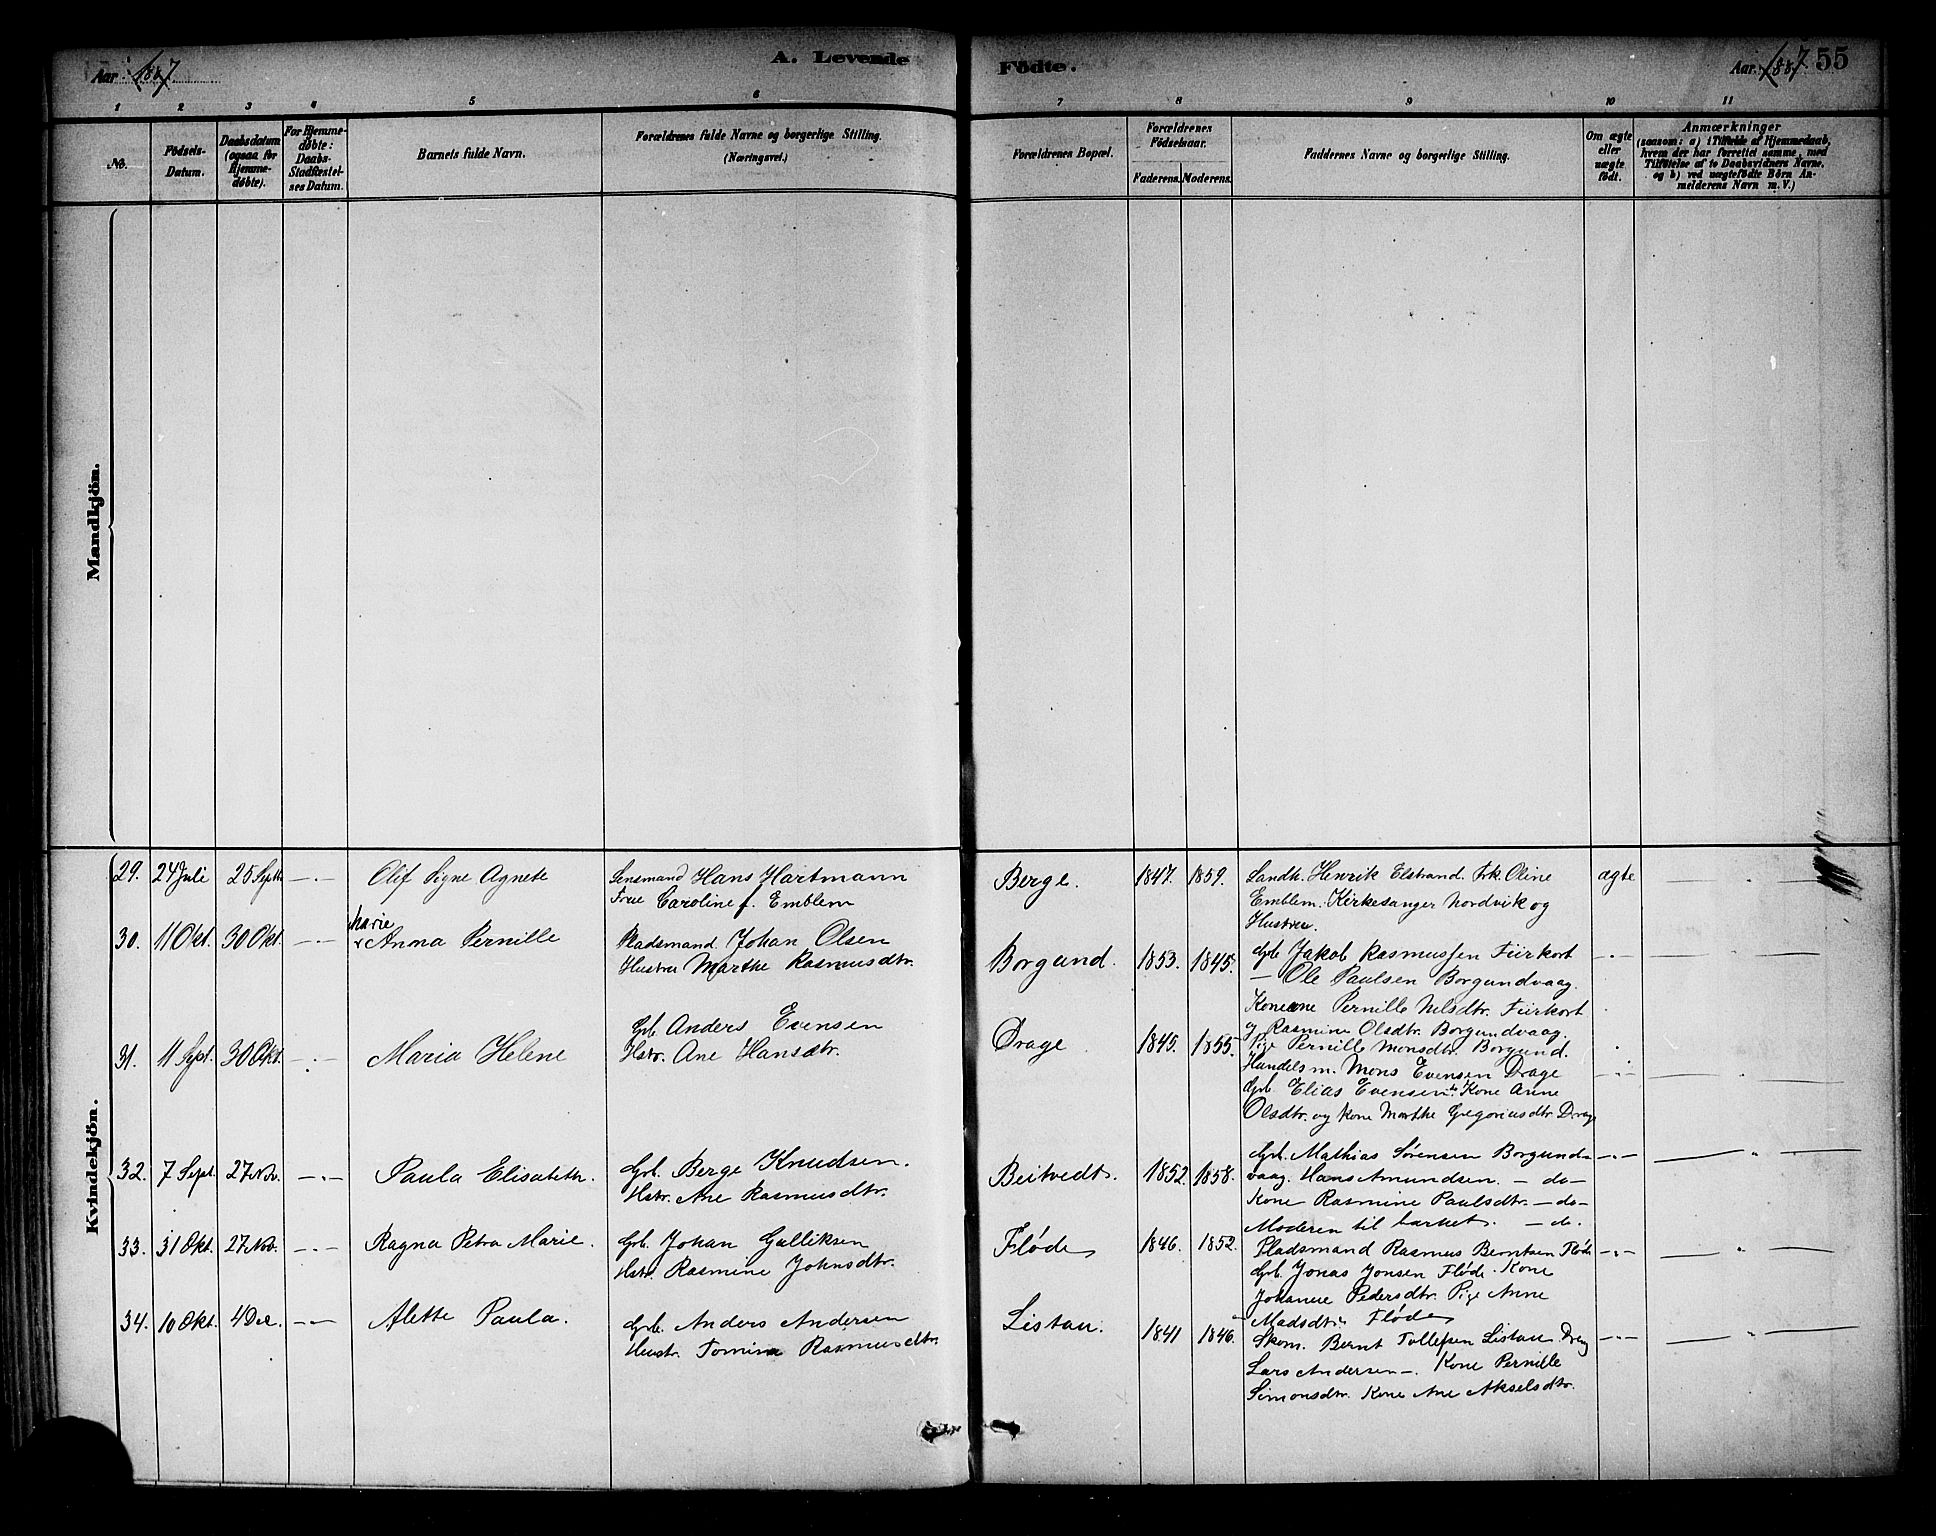 Aar: 1887
A. Levende
Födte.
Aar. 1887 55
1 2 3 4 5 6 7 8 9 10 11
No.
Födsels-
Datum.
Daabsdatum
(ogsaa for
Hjemme-
døbte).
For Hjemme-
døbte:
Daabs-
Stadfæstel-
ses Datum.
Barnets fulde Navn.
Forældrenes fulde Navne og borgerlige Stilling.
(Næringsvei.)
Forældrenes Bopæl.
Forældrenes
Fødselsaar.
Faderens. Moderens.
Faddernes Navne og borgerlige Stilling.
Om ægte
eller
uægte
født.
Anmærkninger
(saasom: a) i Tilfælde af Hjemmedaab,
hvem der har forrettet samme, med
Tilføielse af to Daabsvidners Navne,
og b) ved uægtefødte Börn An-
melderens Navn m. V.)
Mandkjön.
Kvindekjön.
29. 24 Juli 25 Septb. —.— Olif Signe Agnete
Lensmand Hans Hartmann
Frue Caroline f. Emblem
Berge. 1847. 1859.
Landh. Henrik Elstrand. Frk. Oline
Emblem. Kirkesanger Nordvik og
Hustru.
ægte — " —
30. 11 Okt. 30 Okt. —.— Marie
Anna Pernille
Pladsmand Johan Olsen
Hustru Marthe Rasmusdtr.
Borgund. 1853. 1845.
Gb. Jakob Rasmussen Fürkort
— Ole Paulsen Borgundvaag.
Konerne Pernille Nilsdtr. Fürkort
og Rasmine Olsdtr. Borgundvaag.
Pige Pernille Monsdtr. Borgund.
—.— — " —
31. 11 Sept. 30 Okt. —.— Maria Helene
Grb. Anders Evensen
Hstr. Ane Hansdtr.
Drage 1845. 1855.
Handelsm. Mons Evensen Drage
Grb. Elias Evensen. Kone Anne
Olsdtr. og Kone Marthe Gregoriusdtr Drage
—.— — " —
32. 7 Sept. 27 Nov. —.— Paula Elisabeth.
Grb. Berge Knudsen.
Hstr. Ane Rasmusdtr.
Beitvedt. 1852. 1858.
Grb. Mathias Sørensen Borgund-
vaag. Hans Amundsen. — do—
Kone Rasmine Paulsdtr. — do—
Moderen til barnet. — do.
—.— — " —
33. 31 Okt. 27 Nov. —.— Ragna Petra Marie.
Grb. Johan Gulliksen
Hstr. Rasmine Johnsdtr.
Fløde 1846. 1852.
Pladsmand Rasmus Berntsen Fløde
Grb. Jonas Jonsen Fløde. Kone
Johanne Pedersdtr. Pige Anne
Madsdtr. Fløde
—.— — " —
34. 10 Okt. 4 Dec. —.— Alette Paula.
Grb. Anders Andersen
Hustr. Tomine Rasmusdtr.
Listau. 1841 1846.
Skom. Bernt Tollefsen Listau. Dreng
Lars Andersen —. Kone Pernille
Simonsdtr. Kone Ane Akselsdtr.
—.— — " —